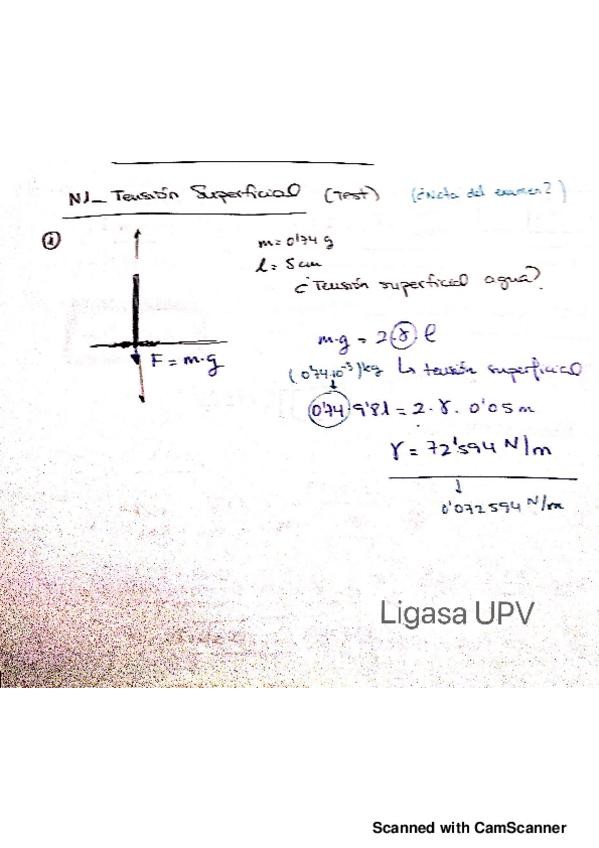 NJ_ Tensión Superficial (Test) (¿Nota del examen?)
① m = 0'74 g
l = 5 cm
¿Tensión superficial agua?
F = m·g
m·g = 2 γ l
(0'74·10⁻³) kg ↳ tensión superficial
0'74·9'81 = 2·γ·0'05 m
γ = 72'594 N/m
↓
0'072594 N/m
Ligasa UPV
Scanned with CamScanner